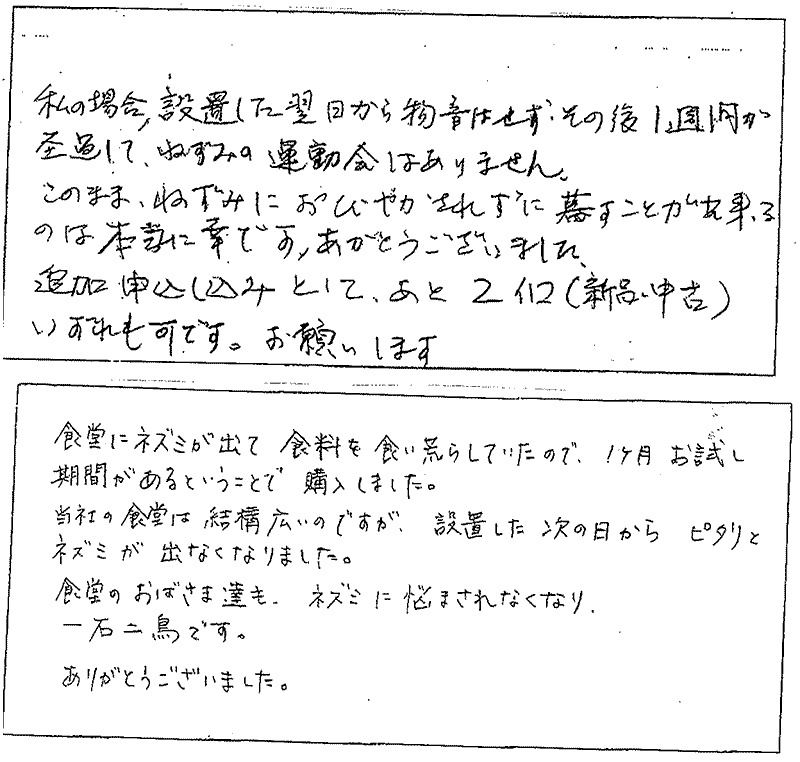 私の場合,設置した翌日から物音はせず、その後1週間が
経過して、ねずみの運動会はありません。
このまま、ねずみにおびやかされずに暮すことが出来る
のは本当に幸です,ありがとうございました、
追加申込し込みとして、あと2個(新品・中古)
いずれも可です。お願いします
食堂にネズミが出て食料を食い荒らしていたので、1ヶ月お試し
期間があるということで購入しました。
当社の食堂は結構広いのですが、設置した次の日からピタリと
ネズミが出なくなりました。
食堂のおばさま達も、ネズミに悩まされなくなり、
一石二鳥です。
ありがとうございました。